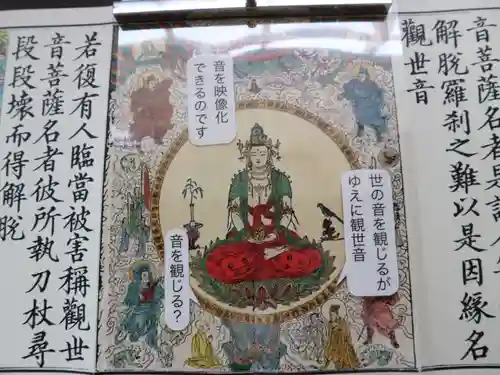 音菩薩名者是
解脫羅刹之難以是因緣名
觀世音
世の音を観じるが
ゆえに観世音
音を映像化
できるのです
音を観じる？
若復有人臨當被害稱觀世
音菩薩名者彼所執刀杖尋
段段壞而得解脫